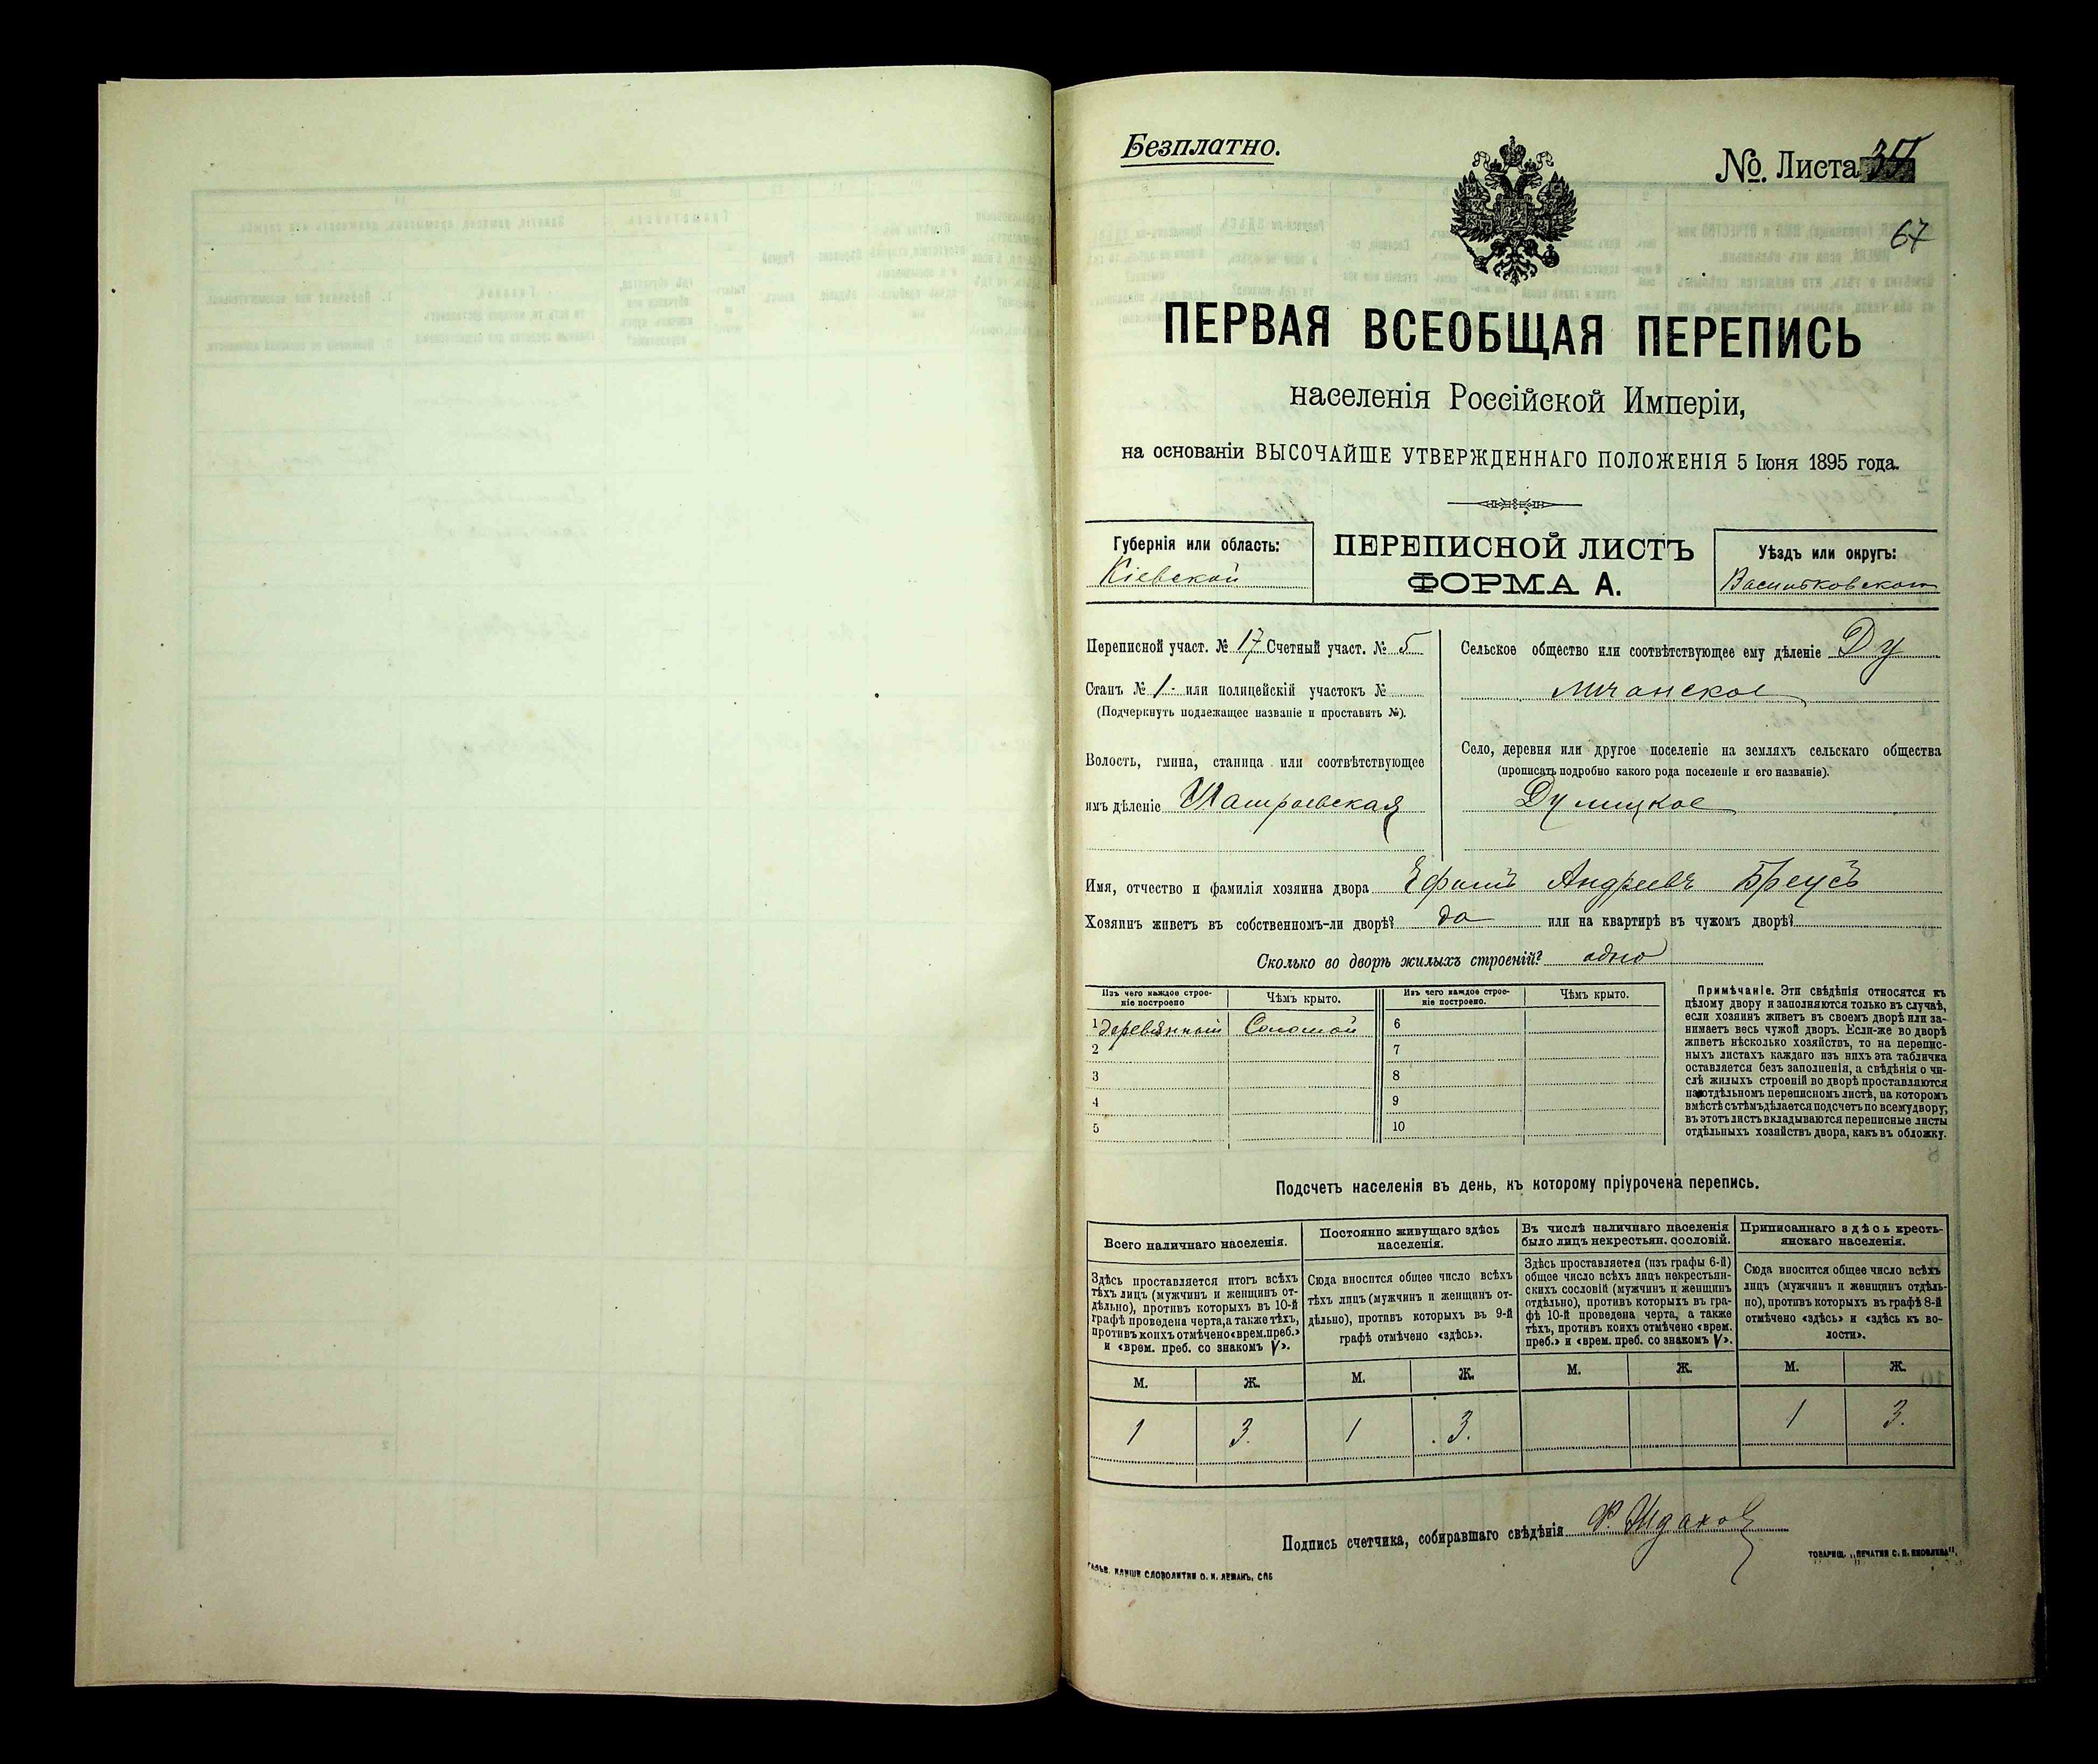 Безплатно.
№. Листа
67
ПЕРВАЯ ВСЕОБЩАЯ ПЕРЕПИСЬ
населенія Россійской Имперіи,
на основаніи ВЫСОЧАЙШЕ УТВЕРЖДЕННАГО ПОЛОЖЕНІЯ 5 Іюня 1895 года.
Губернія или область:
Кіевской
ПЕРЕПИСНОЙ ЛИСТЪ
ФОРМА А.
Уѣздъ или округъ:
Васильковского
Переписной участ. № 17 Счетный участ. № 5
Станъ № 1 или полицейскій участокъ №
(Подчеркнуть подлежащее названіе и проставить №).
Волость, гмина, станица или соотвѣтствующее
имъ дѣленіе
Сельское общество или соотвѣтствующее ему дѣленіе Ду
Село, деревня или другое поселеніе на земляхъ сельскаго общества
(прописать подробно какого рода поселеніе и его названіе).
Дулицкое
Имя, отчество и фамилія хозяина двора Ефимъ Андреевъ Бреусъ
Хозяинъ живетъ въ собственномъ-ли дворѣ? да или на квартирѣ въ чужомъ дворѣ?
Сколько во дворѣ жилыхъ строеній? одно
Изъ чего каждое строе-
ніе построено
Чѣмъ крыто.
Изъ чего каждое строе-
ніе построено.
Чѣмъ крыто.
1 деревянный Соломой 6
2 7
3 8
4 9
5 10
Примѣчаніе. Эти свѣдѣнія относятся къ
цѣлому двору и заполняются только въ случаѣ,
если хозяинъ живетъ въ своемъ дворѣ или за-
нимаетъ весь чужой дворъ. Если-же во дворѣ
живетъ нѣсколько хозяйствъ, то на перепис-
ныхъ листахъ каждаго изъ нихъ эта табличка
оставляется безъ заполненія, а свѣдѣнія о чи-
слѣ жилыхъ строеній во дворѣ проставляются
на отдѣльномъ переписномъ листѣ, на которомъ
вмѣстѣ съ тѣмъ дѣлается подсчетъ по всему двору;
въ этотъ листъ вкладываются переписные листы
отдѣльныхъ хозяйствъ двора, какъ въ обложку.
Подсчетъ населенія въ день, къ которому пріурочена перепись.
Всего наличнаго населенія.
Здѣсь проставляется итогъ всѣхъ
тѣхъ лицъ (мужчинъ и женщинъ от-
дѣльно), противъ которыхъ въ 10-й
графѣ проведена черта, а также тѣхъ,
противъ коихъ отмѣчено «врем. преб.»
и «врем. преб. со знакомъ V».
Постоянно живущаго здѣсь
населенія.
Сюда вносится общее число всѣхъ
тѣхъ лицъ (мужчинъ и женщинъ от-
дѣльно), противъ которыхъ въ 9-й
графѣ отмѣчено «здѣсь».
Въ числѣ наличнаго населенія
было лицъ некрестьян. сословій.
Здѣсь проставляется (изъ графы 6-й)
общее число всѣхъ лицъ некрестьян-
скихъ сословій (мужчинъ и женщинъ
отдѣльно), противъ которыхъ въ гра-
фѣ 10-й проведена черта, а также
тѣхъ, противъ коихъ отмѣчено «врем.
преб.» и «врем. преб. со знакомъ V».
Приписаннаго здѣсь кресть-
янскаго населенія.
Сюда вносится общее число всѣхъ
лицъ (мужчинъ и женщинъ отдѣль-
но), противъ которыхъ въ графѣ 8-й
отмѣчено «здѣсь» и «здѣсь къ во-
лости».
М. Ж. М. Ж. М. Ж. М. Ж.
1 3. 1 3. 1 3.
Подпись счетчика, собиравшаго свѣдѣнія
ТОВАРИЩ. „ПЕЧАТНЯ С. П. ЯКОВЛЕВА".
КЛИШЕ СЛОВОЛИТНИ О. И. ЛЕМАНЪ, СПБ